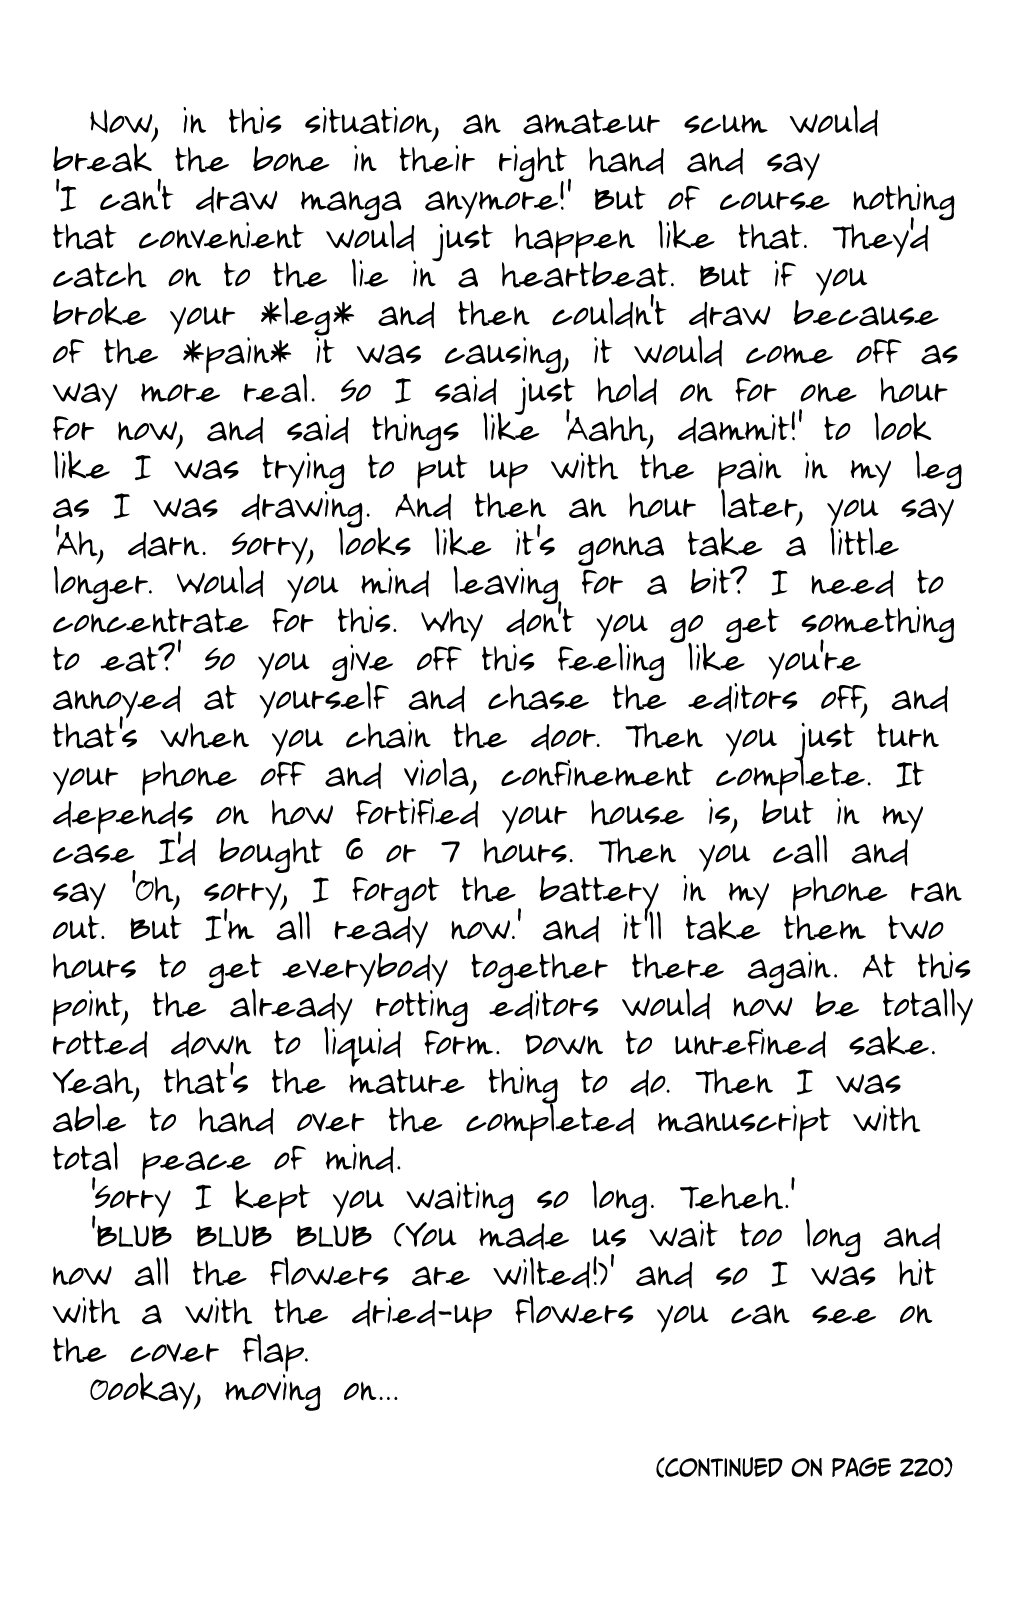 Now, in this situation, an amateur scum would
break the bone in their right hand and say
'I can't draw manga anymore!' But of course nothing
that convenient would just happen like that. They'd
catch on to the lie in a heartbeat. But if you
broke your *leg* and then couldn't draw because
of the *pain* it was causing, it would come off as
way more real. So I said just hold on for one hour
for now, and said things like 'Aahh, dammit!' to look
like I was trying to put up with the pain in my leg
as I was drawing. And then an hour later, you say
'Ah, darn. Sorry, looks like it's gonna take a little
longer. Would you mind leaving for a bit? I need to
concentrate for this. Why don't you go get something
to eat?' So you give off this feeling like you're
annoyed at yourself and chase the editors off, and
that's when you chain the door. Then you just turn
your phone off and viola, confinement complete. It
depends on how fortified your house is, but in my
case I'd bought 6 or 7 hours. Then you call and
say 'Oh, sorry, I forgot the battery in my phone ran
out. But I'm all ready now.' and it'll take them two
hours to get everybody together there again. At this
point, the already rotting editors would now be totally
rotted down to liquid form. Down to unrefined sake.
Yeah, that's the mature thing to do. Then I was
able to hand over the completed manuscript with
total peace of mind.
'Sorry I kept you waiting so long. Teheh.'
'BLUB BLUB BLUB (You made us wait too long and
now all the flowers are wilted!)' and so I was hit
with a with the dried-up flowers you can see on
the cover flap.
Oookay, moving on...
(CONTINUED ON PAGE 220)